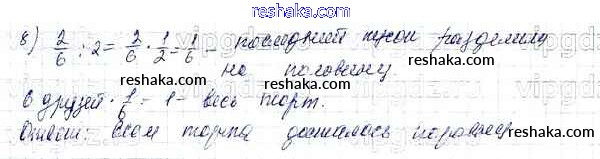 reshaka.com
8) 2/6 : 2 = 2/6 · 1/2 = 1/6 – последний кусок разделили
на половину.
reshaka.com
reshaka.com
6 друзей · 1/6 = 1 – весь торт.
Ответ: всем торта досталось поровну.
reshaka.com